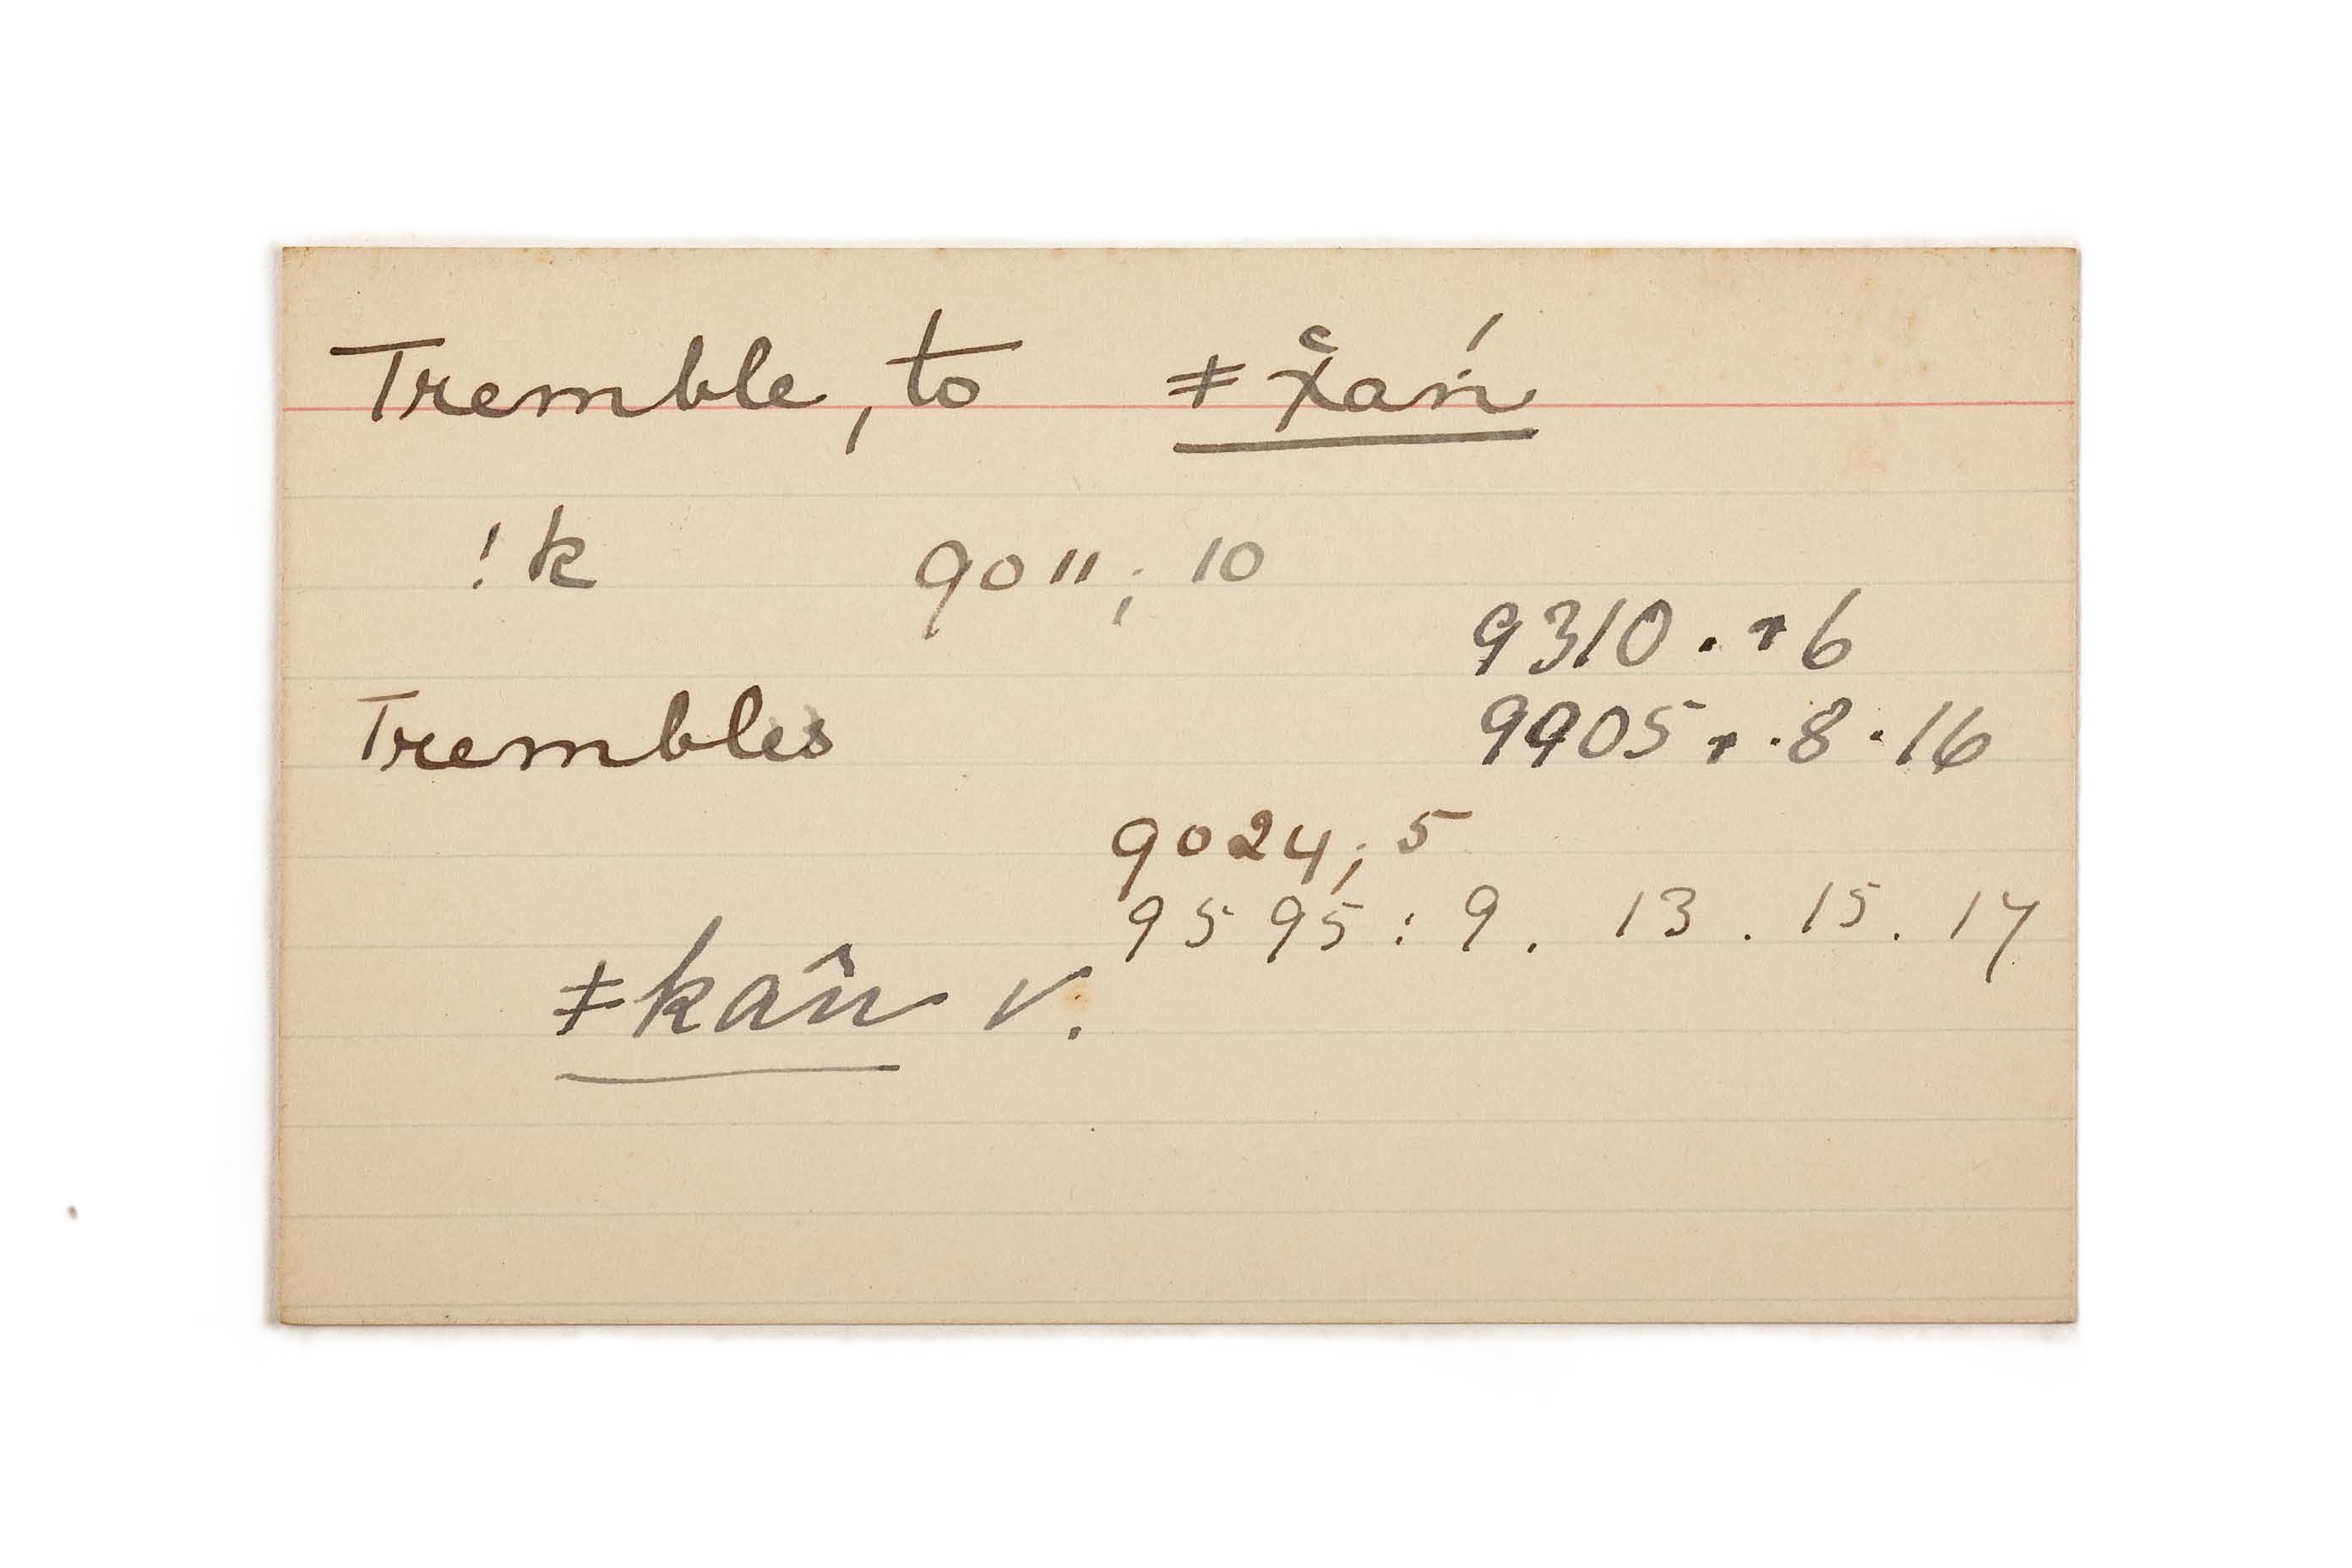 Tremble, to ǂx̆ań
!k 9011; 10
9310 . 6
Trembles 9905 . 8 . 16
9024; 5
9595 : 9 . 13 . 15 . 17
ǂkan̂ v.